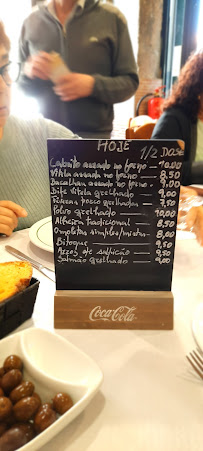 HOJE 1/2 DOSE
Cabrito assado no forno — 10.00
Vitela assada no forno — 8.50
Bacalhau assado no forno — 9.00
Bife Vitela grelhado — 9.00
Fevera porco grelhada — 7.50
Polvo grelhado — 10.00
Alheira tradicional — 8.50
Omoletas simples/mistas — 8.00
Bitoque — 9.50
Arroz de salpicão — 9.50
Salmão grelhado — 9.00
Coca-Cola